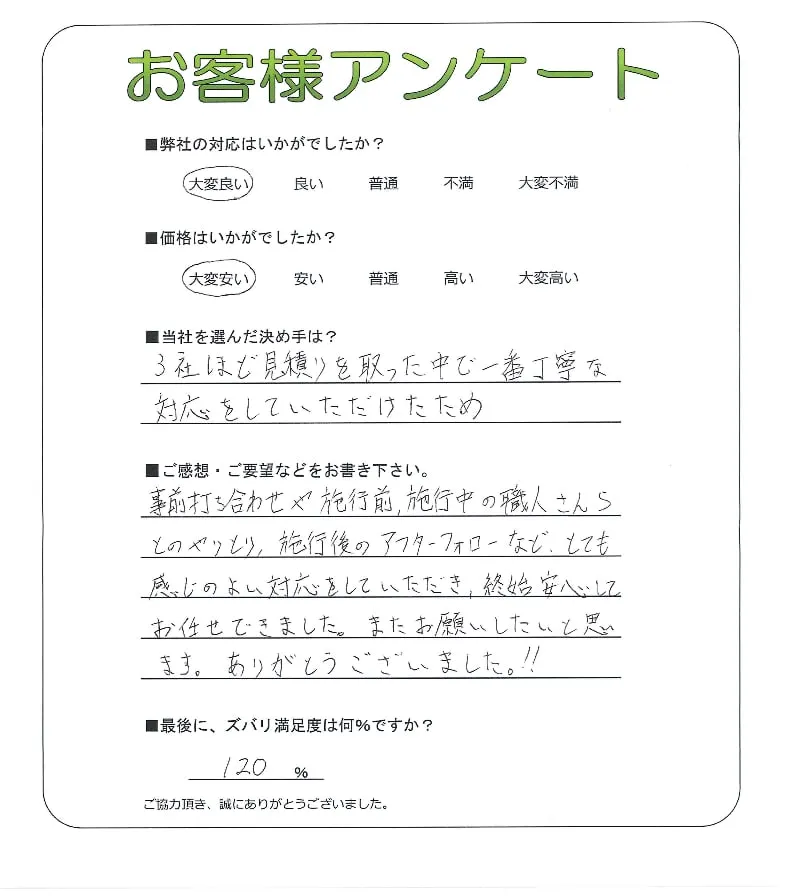 お客様アンケート
■弊社の対応はいかがでしたか?
大変良い 良い 普通 不満 大変不満
■価格はいかがでしたか?
大変安い 安い 普通 高い 大変高い
■当社を選んだ決め手は?
3社ほど見積りを取った中で一番丁寧な
対応をしていただけたため
■ご感想・ご要望などをお書き下さい。
事前打ち合わせや施行前,施行中の職人さんら
とのやりとり,施行後のアフターフォローなど、とても
感じのよい対応をしていただき,終始安心して
お任せできました。またお願いしたいと思い
ます。ありがとうございました。!!
■最後に、ズバリ満足度は何%ですか?
120 %
ご協力頂き、誠にありがとうございました。